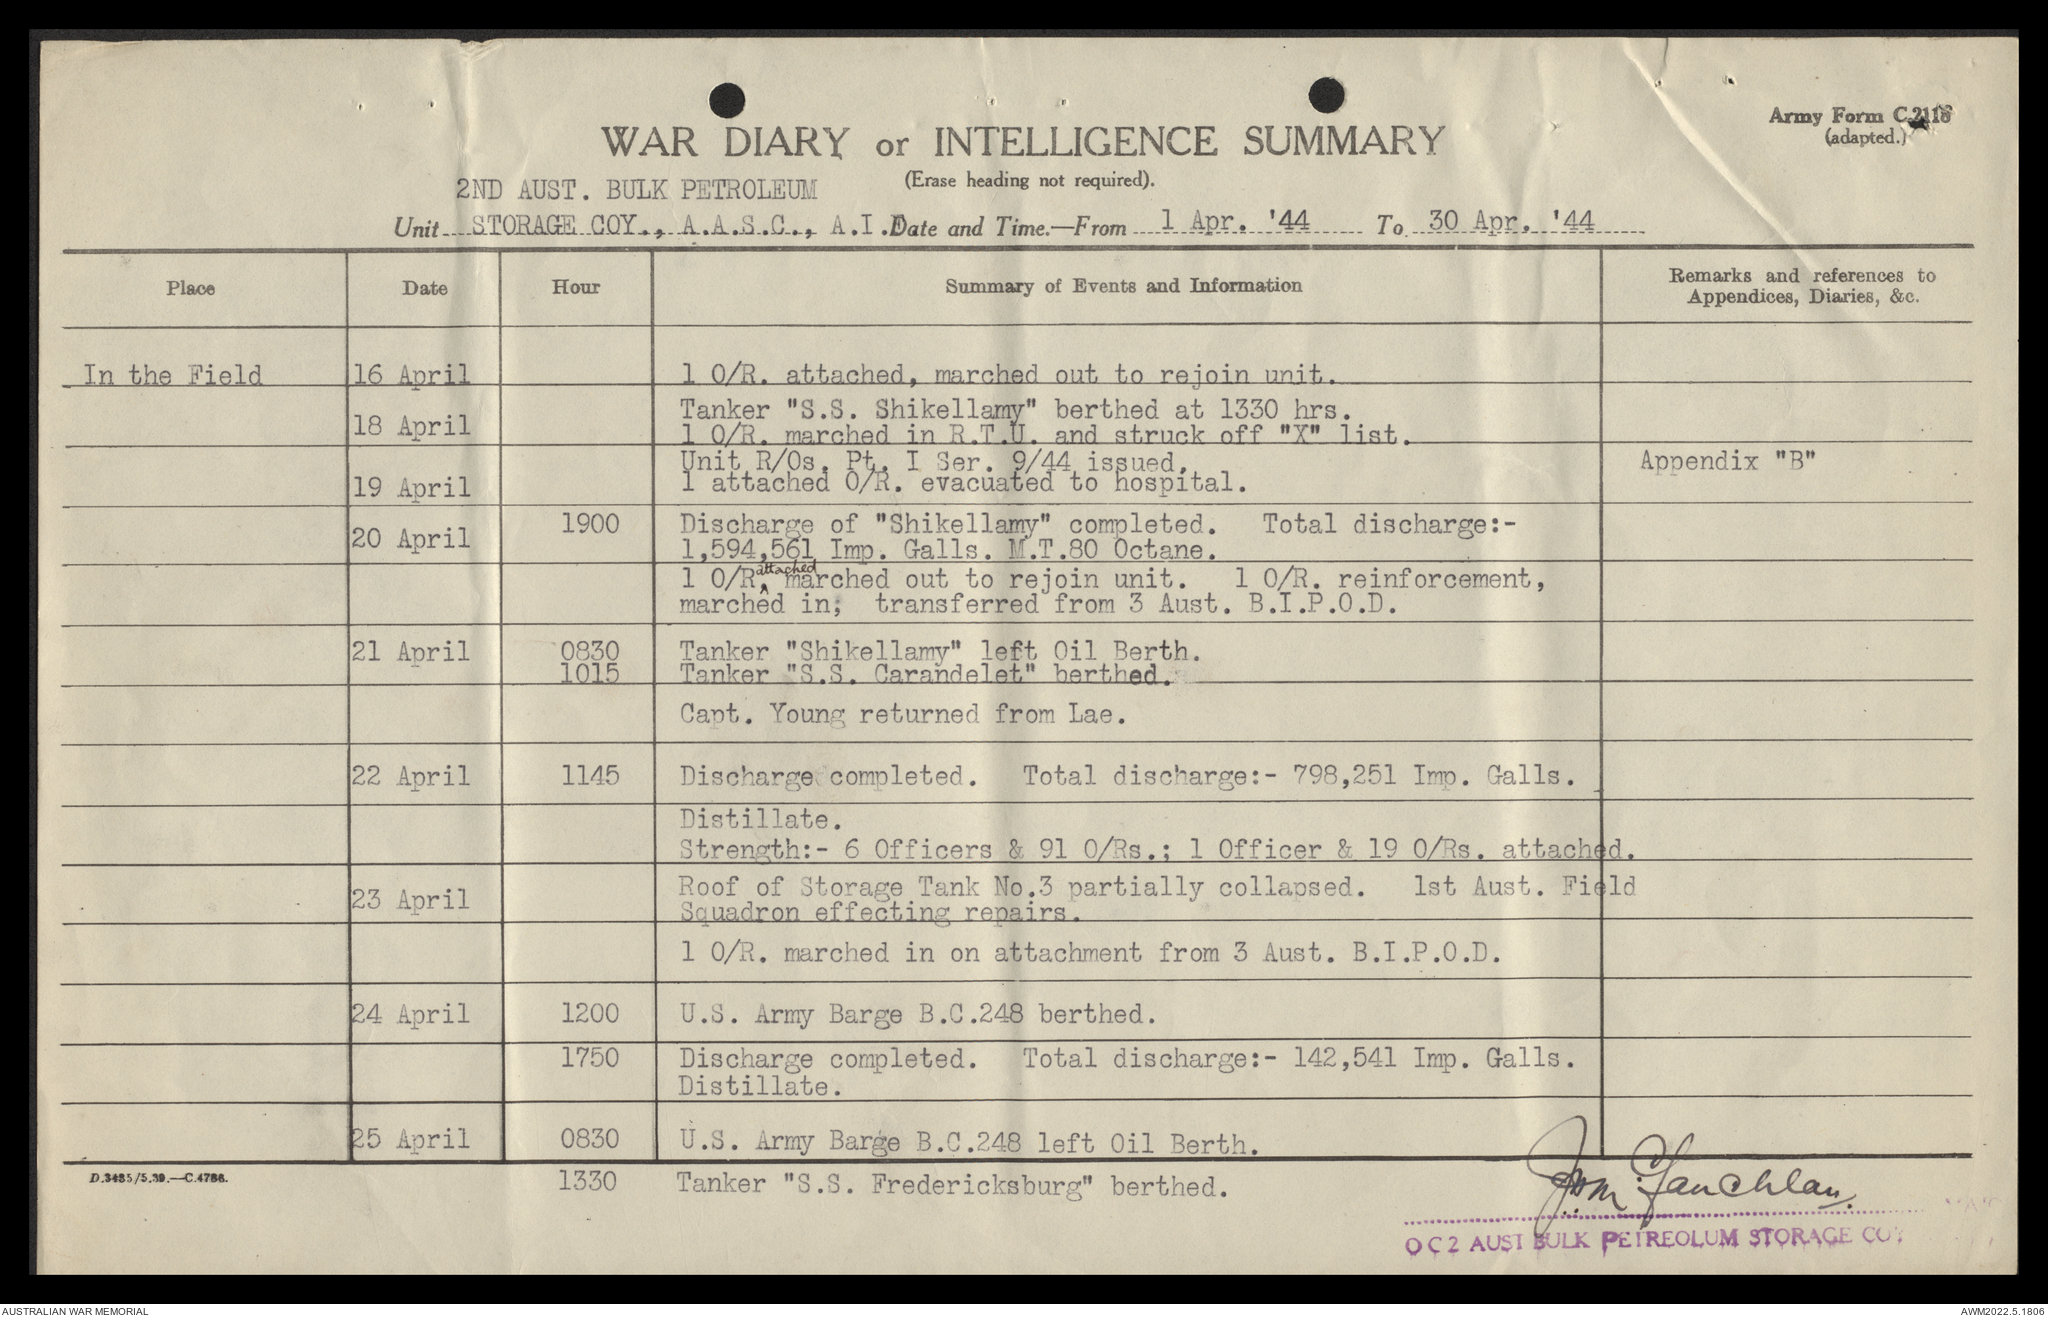 Army Form C.2118
(adapted.)
WAR DIARY or INTELLIGENCE SUMMARY
(Erase heading not required).
2ND AUST. BULK PETROLEUM
Unit STORAGE COY., A.A.S.C., A.I.F. Date and Time.—From 1 Apr. '44 To 30 Apr. '44
Place Date Hour Summary of Events and Information Remarks and references to
Appendices, Diaries, &c.
In the Field 16 April 1 O/R. attached, marched out to rejoin unit.
18 April Tanker "S.S. Shikellamy" berthed at 1330 hrs.
1 O/R. marched in R.T.U. and struck off "X" list.
Unit R/Os. Pt. I Ser. 9/44 issued. Appendix "B"
19 April 1 attached O/R. evacuated to hospital.
20 April 1900 Discharge of "Shikellamy" completed. Total discharge:-
1,594,561 Imp. Galls. M.T.80 Octane.
1 O/R, attached marched out to rejoin unit. 1 O/R. reinforcement,
marched in; transferred from 3 Aust. B.I.P.O.D.
21 April 0830 Tanker "Shikellamy" left Oil Berth.
1015 Tanker "S.S. Carandelet" berthed.
Capt. Young returned from Lae.
22 April 1145 Discharge completed. Total discharge:- 798,251 Imp. Galls.
Distillate.
Strength:- 6 Officers & 91 O/Rs.; 1 Officer & 19 O/Rs. attached.
23 April Roof of Storage Tank No.3 partially collapsed. 1st Aust. Field
Squadron effecting repairs.
1 O/R. marched in on attachment from 3 Aust. B.I.P.O.D.
24 April 1200 U.S. Army Barge B.C.248 berthed.
1750 Discharge completed. Total discharge:- 142,541 Imp. Galls.
Distillate.
25 April 0830 U.S. Army Barge B.C.248 left Oil Berth.
D.3485/5.39.—C.4786.
1330 Tanker "S.S. Fredericksburg" berthed.
OC 2 AUST BULK PETREOLUM STORAGE COY
AUSTRALIAN WAR MEMORIAL
AWM2022.5.1806